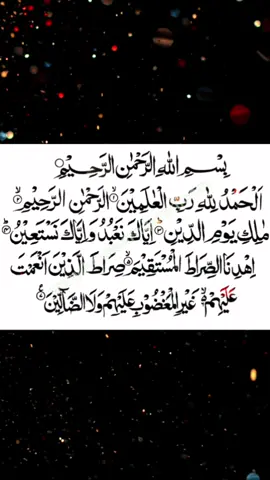 بِسْمِ اللهِ الرَّحْمٰنِ الرَّحِيْمِ
اَلْحَمْدُ لِلّٰهِ رَبِّ الْعٰلَمِيْنَ ۙ﴿۱﴾ الرَّحْمٰنِ الرَّحِيْمِ ۙ﴿۲﴾
مٰلِكِ يَوْمِ الدِّيْنِ ؕ﴿۳﴾ اِيَّاكَ نَعْبُدُ وَاِيَّاكَ نَسْتَعِيْنُ ؕ﴿۴﴾
اِهْدِنَا الصِّرَاطَ الْمُسْتَقِيْمَ ۙ﴿۵﴾ صِرَاطَ الَّذِيْنَ اَنْعَمْتَ
عَلَيْهِمْ ۙ۬ۦ غَيْرِ الْمَغْضُوْبِ عَلَيْهِمْ وَلَا الضَّآلِّيْنَ